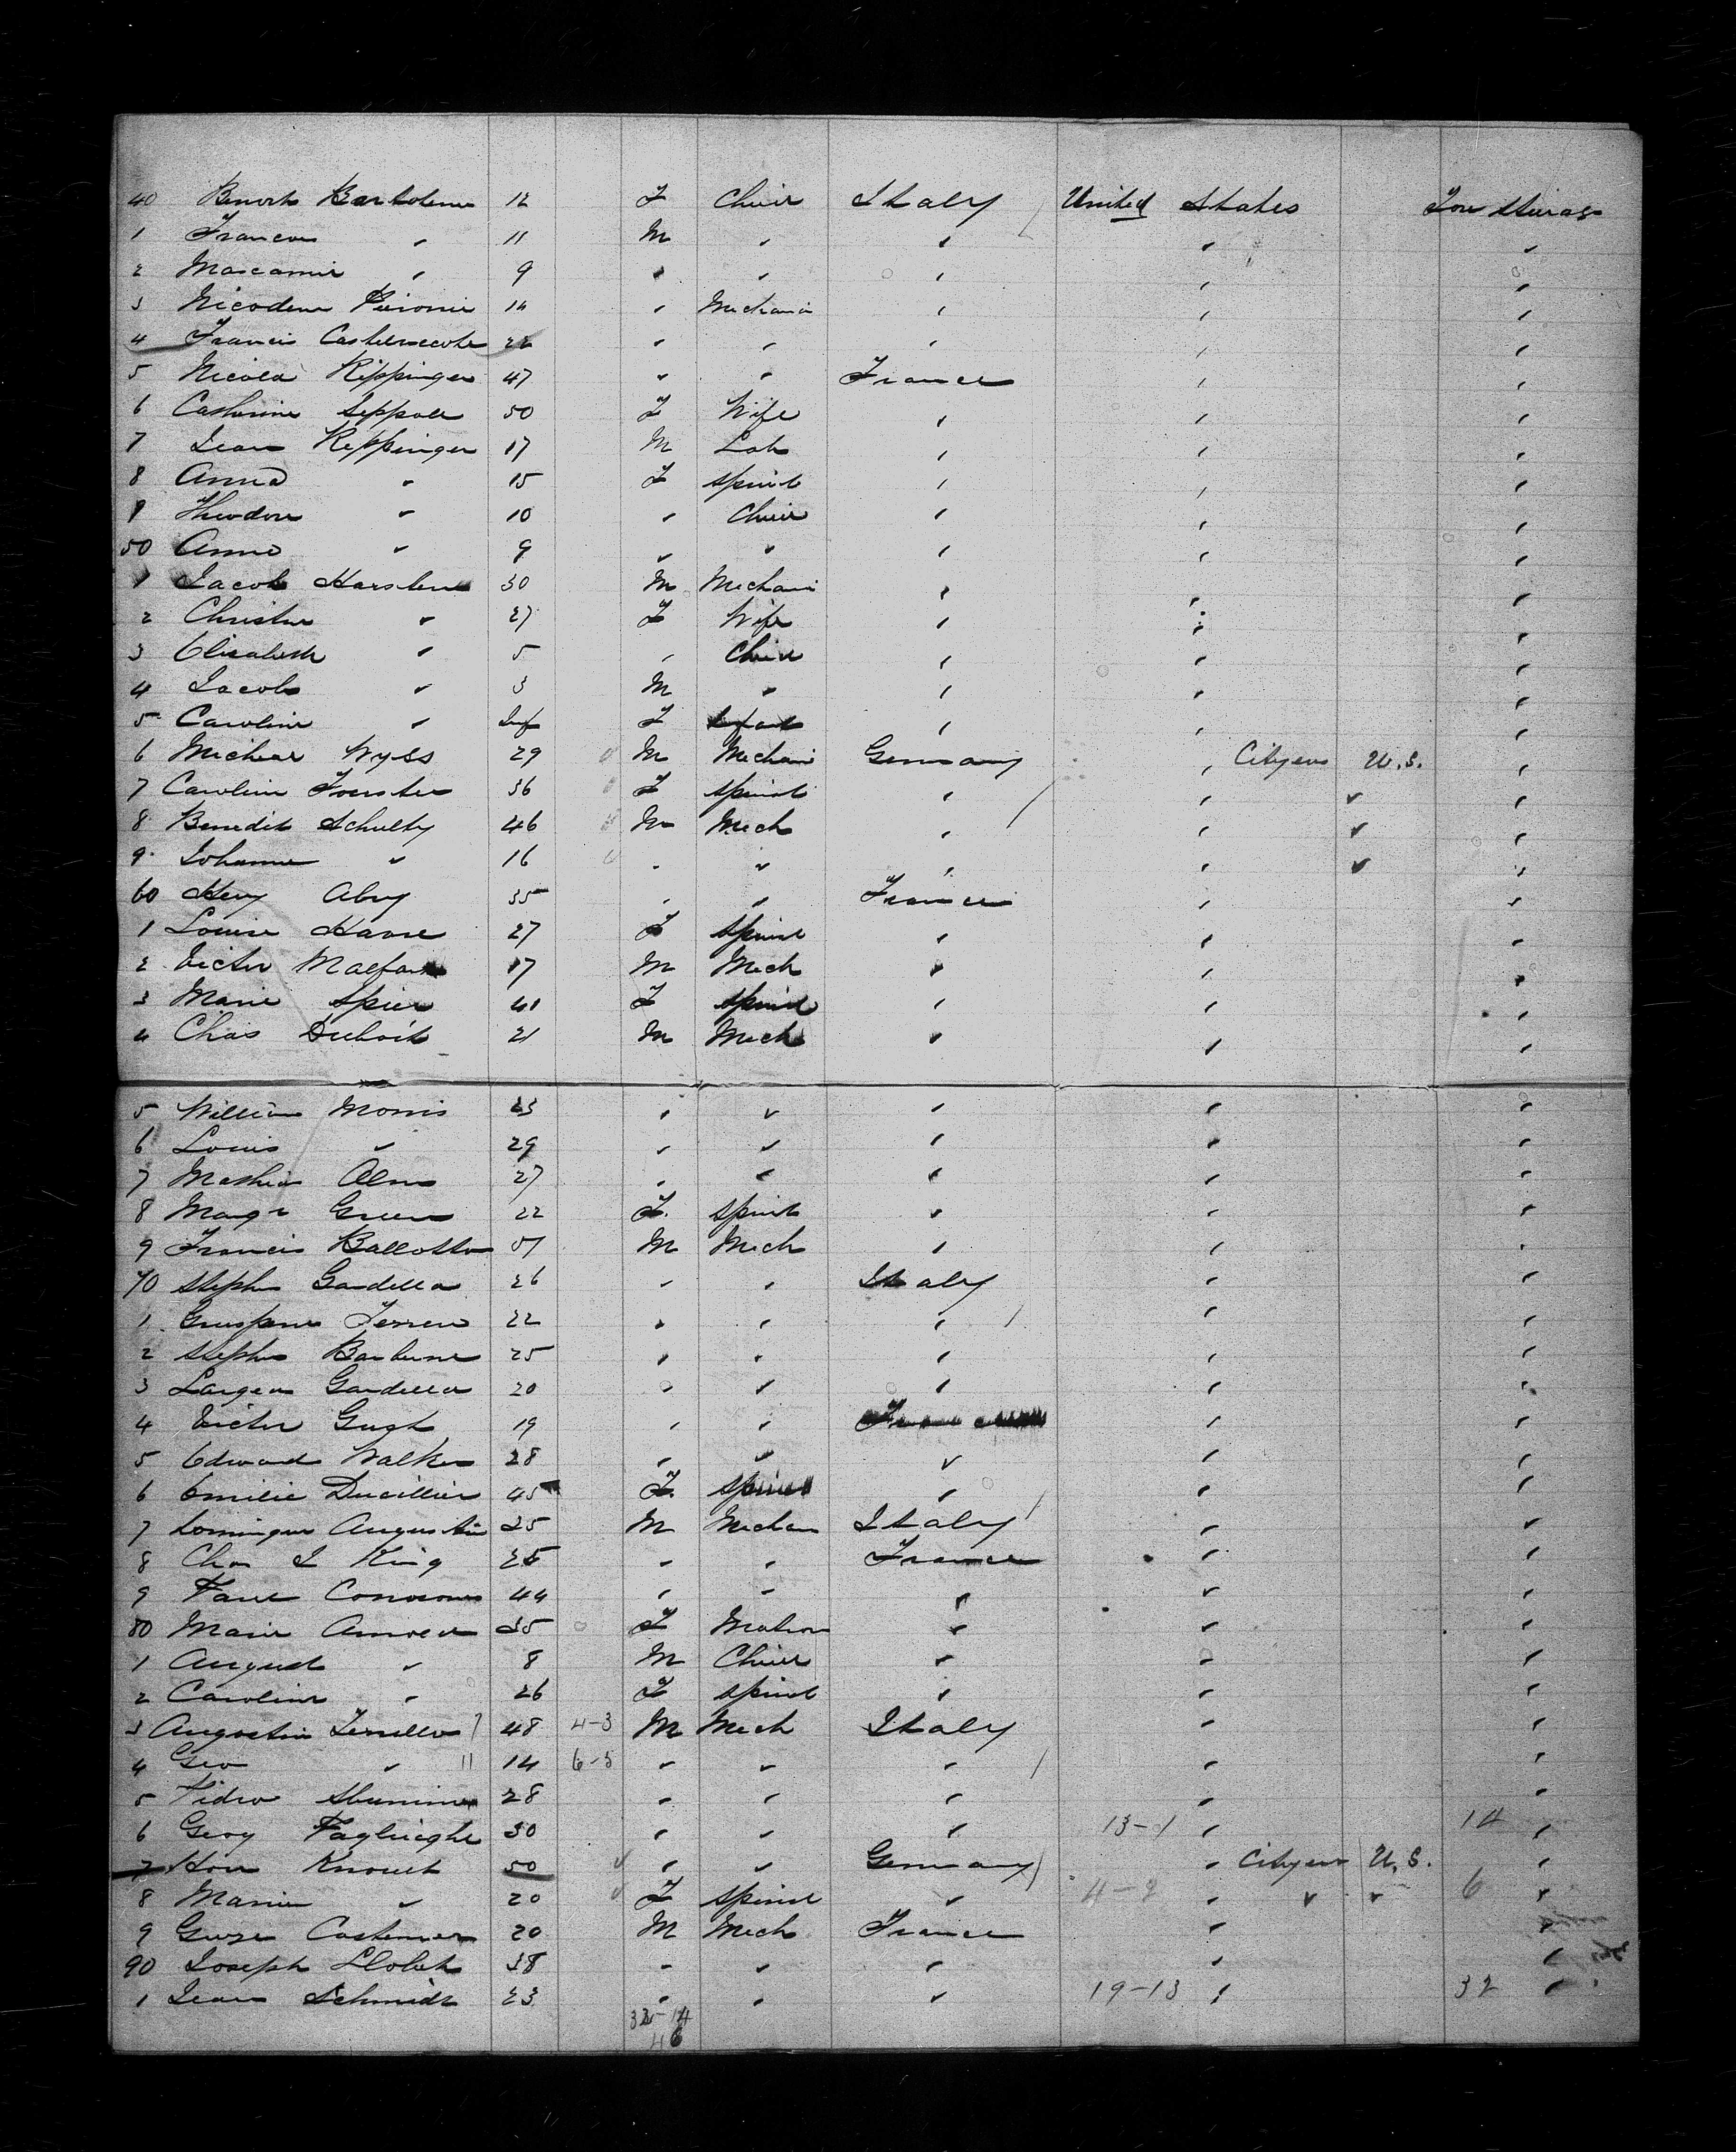 40 Benoit Bartolemi 12 F Child Italy United States Fore Steerage
1 Francois " 11 M " " " "
2 " 9 " " " " "
3 Nicodeme " Mechanic " " "
4 Francis 22 " " " " "
5 Nicola Rippinger 47 " " France " "
6 Catherine Seppale 50 F Wife " " "
7 Jean Rippinger 17 M Lab " " "
8 Anna " 15 F Spinst " " "
9 Theodore " 10 " Child " " "
50 Anna " 9 " " " " "
1 Jacob Karsten 30 M Mechani " " "
2 Christine " 27 F Wife " " "
3 Elisabeth " 5 " Child " " "
4 Jacob " 3 M " " " "
5 Caroline " Inf F Infant " " "
6 Michael Wyss 29 M Mechani Germany " Citizens U.S. "
7 Caroline Foerster 36 F Spinst " " " "
8 Benedit Schultz 46 M Mech " " " "
9 Johanne " 16 " " " " " "
60 Henry Abry 35 " " France " "
1 Louise Haare 27 F Spinst " " "
2 Victor 17 M Mech " " "
3 Marie Spier 41 F Spinst " " "
4 Chas Duboit 21 M Mech " " "
5 William Morris 23 " " " " "
6 Louis " 29 " " " " "
7 Mathias Alm 27 " " " " "
8 Marge Green 22 F. Spinst " " "
9 Francis Ballotto M Mech " " "
70 Stephn Gardella 26 " " Italy " "
1 Ferrero 22 " " " " "
2 Stephn Barbune 25 " " " " "
3 Gardella 20 " " " " "
4 Victor Gugh 19 " " France " "
5 Edward Walker 28 " " " " "
6 Emilie Ducillier 45 F. Spinst " " "
7 Dominque Augustin 25 M Mechan Italy " "
8 Chas L King 25 " " France " "
9 Paul 44 " " " " "
80 Marie Arnold 35 F Matron " " "
1 August " 8 M Child " " "
2 Caroline " 26 F Spinst " " "
3 Augostin 7 48 4-3 M Mech Italy " "
4 Geo " 11 14 6-5 " " " " "
5 Pidro 28 " " " " "
6 Georg 30 " " " 13-1 " 14 "
7 50 " " Germany " Citizens U.S. "
8 " 20 F Spinst " 4-2 " " " 6 "
9 20 M Mech France " "
90 Joseph 38 " " " " "
1 Jean Schmidt 23 " " " 19-13 " 32 "
32-14
46